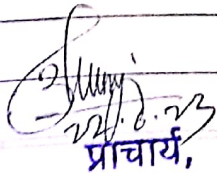 22.6.23
प्राचार्य,